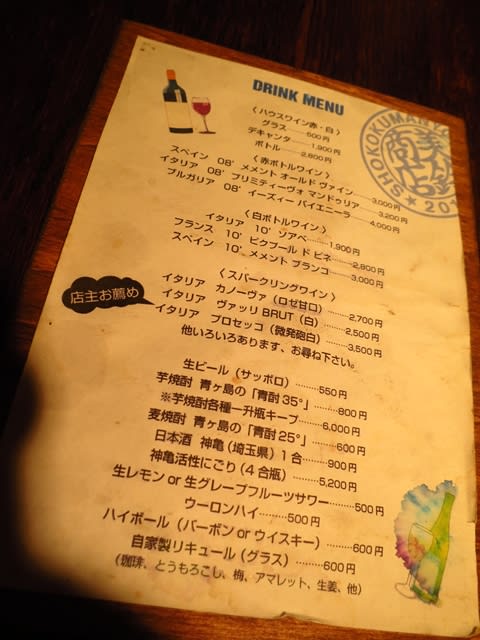 DRINK MENU
〈ハウスワイン赤・白〉
グラス………500円
デキャンタ………1,900円
ボトル………2,800円
〈赤ボトルワイン〉
スペイン 08' メメント オールド ヴァイン………3,000円
イタリア 08' プリミティーヴォ マンドゥリア………3,200円
ブルガリア 08' イーズィー バイエニーラ………4,000円
〈白ボトルワイン〉
イタリア 10' ソアベ………1,900円
フランス 10' ピクプール ド ピネ………2,900円
スペイン 10' メメント ブランコ………3,000円
〈スパークリングワイン〉
イタリア カノーヴァ(ロゼ甘口)………2,700円
店主お薦め
イタリア ヴァッリ BRUT(白)………2,500円
イタリア プロセッコ(微発砲白)………3,500円
他いろいろあります、お尋ね下さい。
生ビール(サッポロ)………550円
芋焼酎 青ヶ島の「青酎35°」………800円
※芋焼酎各種一升瓶キープ………6,000円
麦焼酎 青ヶ島の「青酎25°」………600円
日本酒 神亀(埼玉県)1合………900円
神亀活性にごり(4合瓶)………5,200円
生レモン or 生グレープフルーツサワー………500円
ウーロンハイ………500円
ハイボール(バーボン or ウイスキー)………600円
自家製リキュール(グラス)………600円
(珈琲、とうもろこし、梅、アマレット、生姜、他)